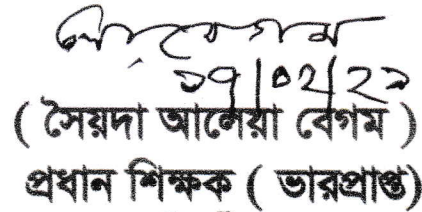 ১৭/০২/২১
( সৈয়দা আলেয়া বেগম )
প্রধান শিক্ষক ( ভারপ্রাপ্ত)